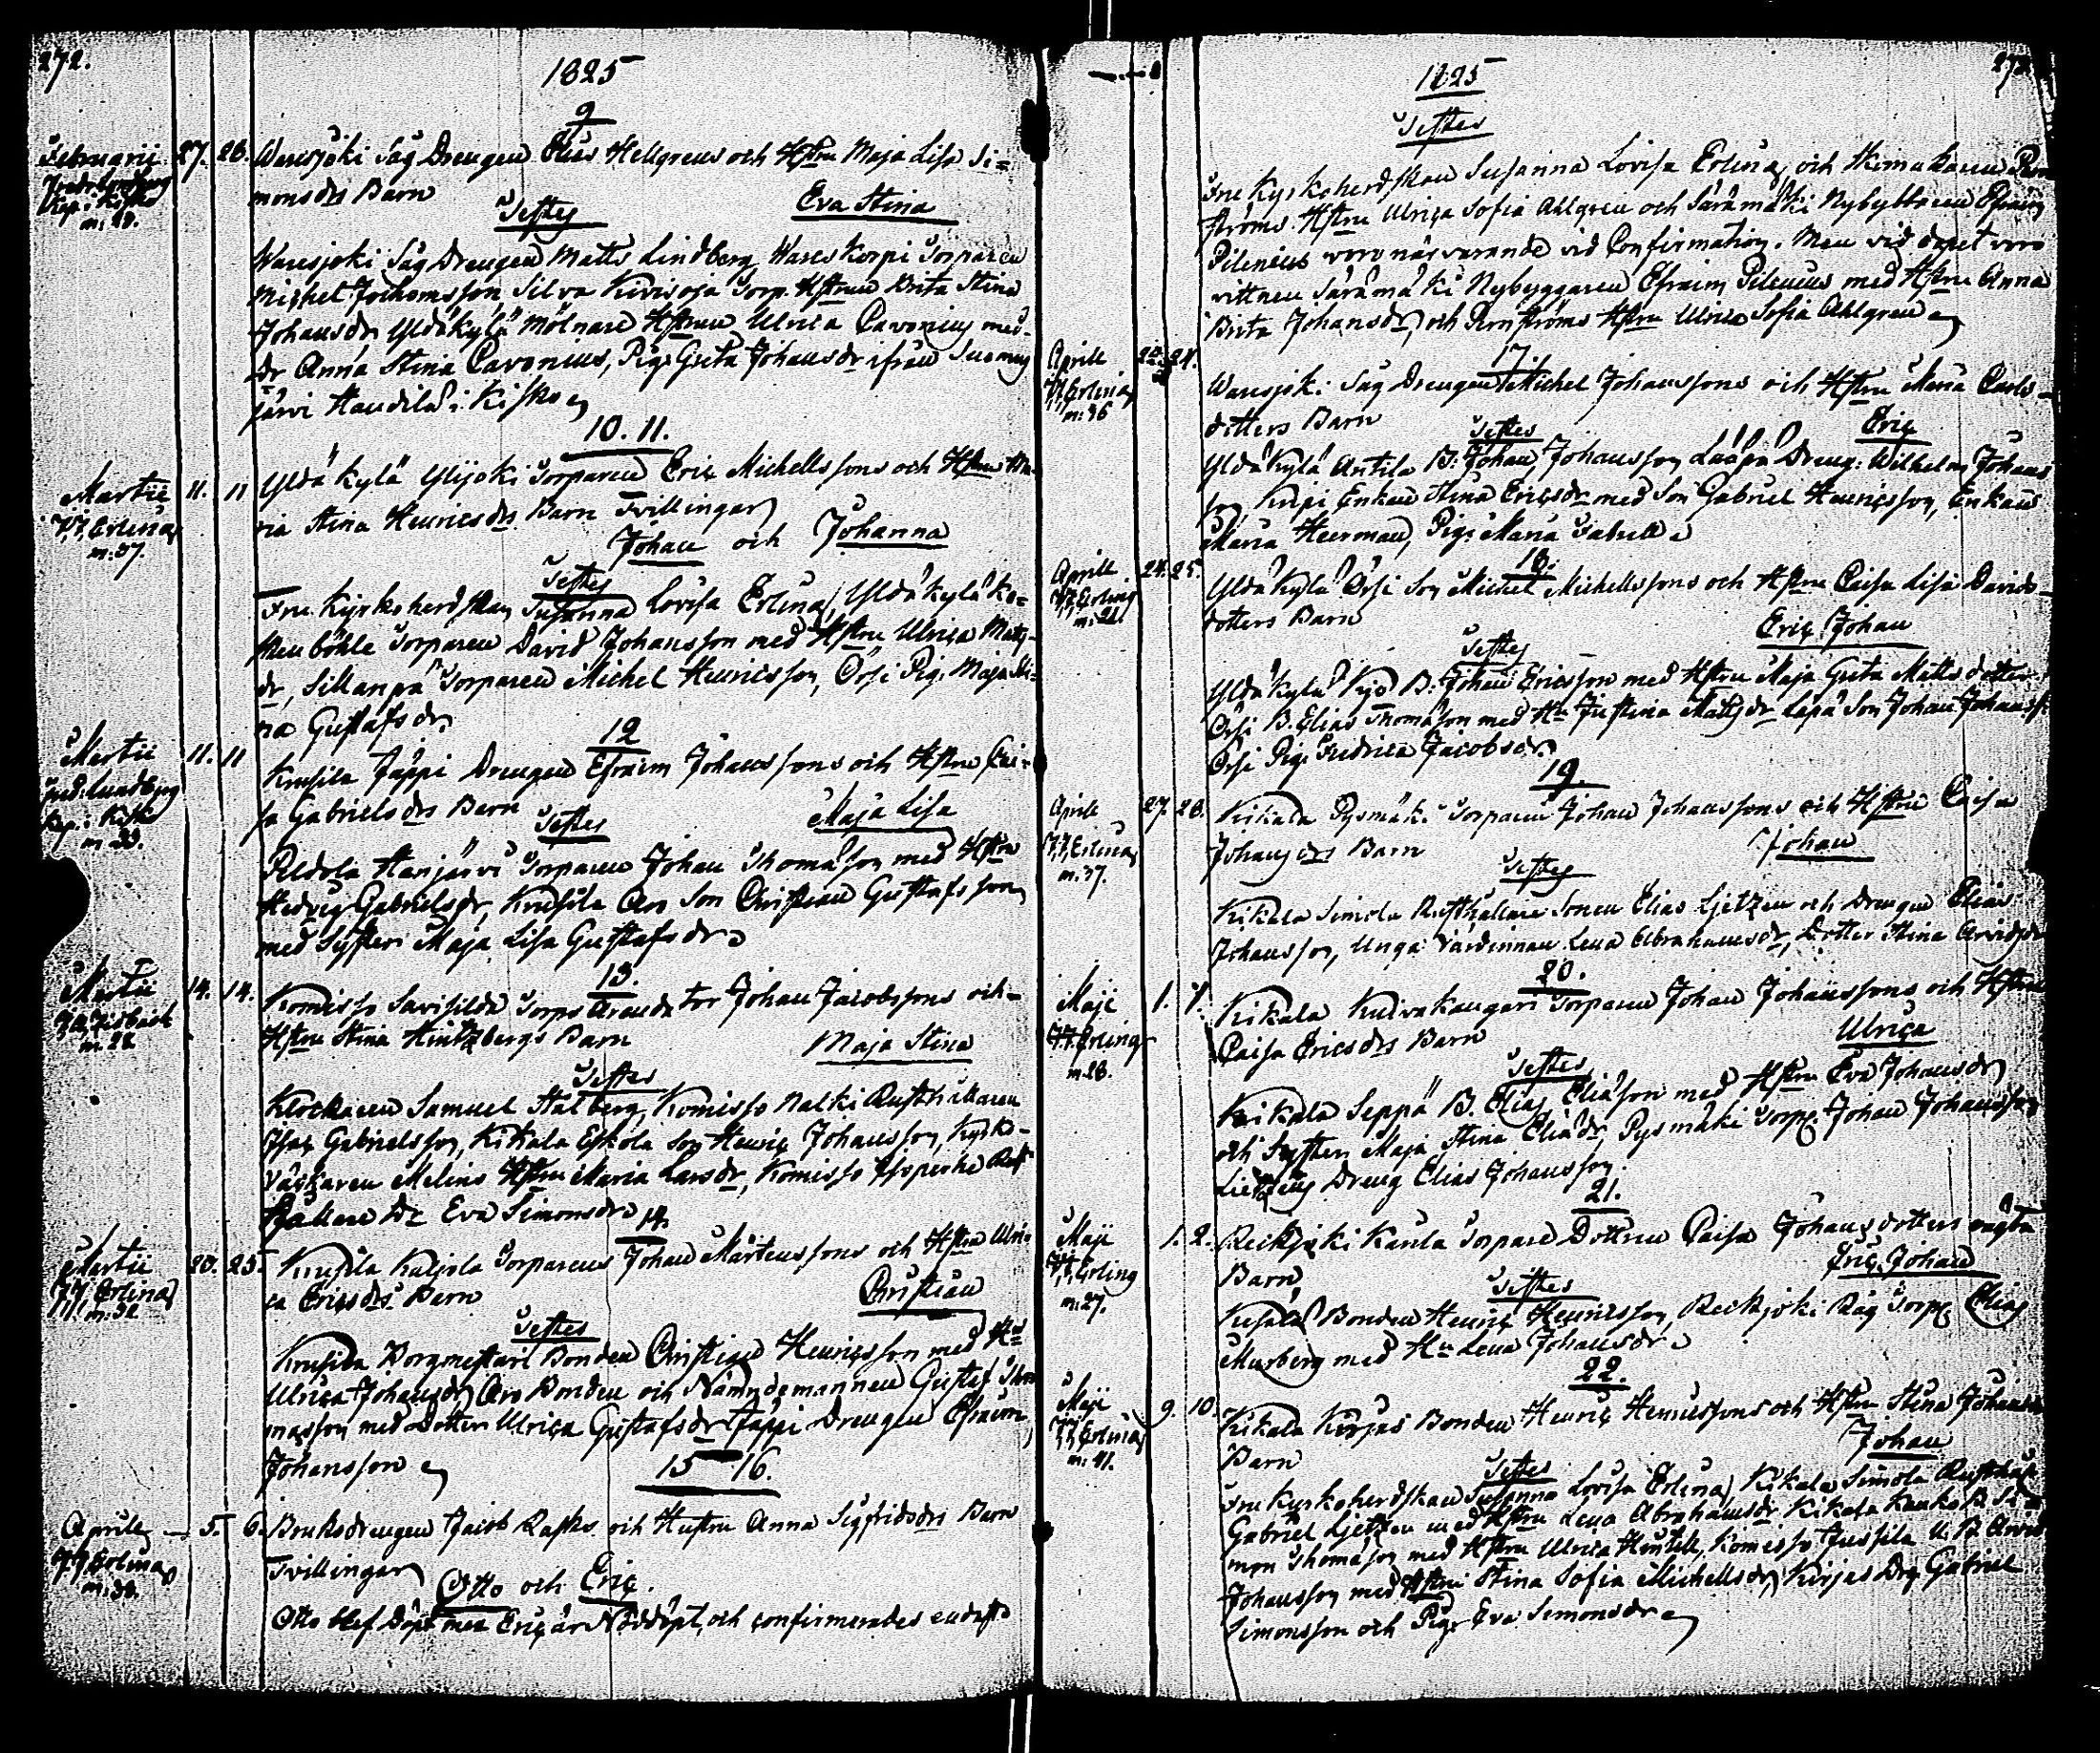 272.
1825
9
Februarii 27. 28. Waresjoki Såg Drengen Elias Hellgrens och Hstru Maja Lisa Si=
Fredr. Lundberg
Kap: i Kisko
m: 28.
monsdrs Barn Eva Stina
Testes
Waresjoki Såg Drengen Matts Lindberg, Wareskorpi Torparen
Michel Jochomsson, Silva Kivisoja Torp. Hstrun Brita Stina
Johansdr, Yldäkylä Mölnare Hstrun Ulrica Cavonius med
dr Anna Stina Cavonius, Pig: Greta Johansdr ifrån Suomus
järvi Handila i Kisko
10. 11.
Martii 11. 11 Yldäkylä Ylijoki Torparen Eric Michelssons och Hstru Ma
J.J. Erlina
m: 37.
ria Stina Henricsdrs Barn Tvillingar
Johan och Johanna
Testes
Fru Kyrkoherdskan Susanna Lovisa Erlina, Yldäkylä Ko=
skenböhle Torparen David Johansson med Hstru Ulrica Mats
dr, Sillanpä Torparen Michel Henricsson, Örsi Pig. Maja Sti=
na Gustafsdr
12
Martii 11. 11 Krusila Jäppi Drengen Efraim Johanssons och Hstru Cai=
Fred: Lundberg
Kap: i Kisk
m 29.
sa Gabrielsdrs Barn Maja Lisa
Testes
Peldola Harjärvi Torparen Johan Thomasson med Hstru
Hedvig Gabrielsdr, Krusila Aro Son Christian Gustafsson
med Syster Maja Lisa Gustafsdr
13.
Martii 14. 14. Komisso Savisilda Torps Arendator Johan Jacobssons och
m. 28
Hstru Stina Hintzbergs Barn Maja Stina
Testes
Klockaren Samuel Stålberg, Komisso Nalki Rusthållaren
Isac Gabrielsson, Kikala Eskola Son Henric Johansson, Kyrko=
väcktaren Melins Hstru Maria Larsdr, Komisso Isoperhe Rust
hållare Dr Eva Simonsdr
14.
Martii 20. 25. Krusila Kaljola Torparens Johan Mårtenssons och Hstru Ulri
J.J. Erlina
m: 32
ca Ericsdrs Barn Christian
Testes
Krusila Borgmestari Bonden Christian Henricsson med Hu
Ulrica Johansdr, Aro Bonden och Nämndemannen Gustaf Tho
masson med Dotter Ulrica Gustafsdr, Jäppi Drengen Efraim
Johansson
15 — 16.
Aprill 5. 6. Bruksdrengen Jacob Rasks och Hustru Anna Sigfridsdrs Barn
J.J. Erlina
m: 38.
Tvillingar
Otto och Eric.
Otto blef döpt men Eric är Nöddöpt, och confirmerades endast
1825
Testes
Fru Kyrkoherdskan Susanna Lovisa Erlina, och Skomakaren Pern
ströms Hstru Ulrica Sofia Ahlgren och Säramäki Nybyggaren Efraim
Pilenius voro närvarande vid Confirmation. Men vid dopet voro
vittnen Säramäki Nybyggaren Efraim Pilenius med Hstru Anna
Brita Johansdr, och Pernströms Hstru Ulrica Sofia Ahlgren
17.
Aprill 24. Waresjoki Såg Drengen Michel Johanssons och Hstru Maria Carls=
J.J. Erlina
m: 36
dotters Barn Eric
Testes
Yldäkylä Antila B: Johan Johansson, Lääpä Dreng: Wilhelm Johans
son, Knipi Enkan Stina Ericsdr med Son Gabriel Henricsson, Enkan
Maria Heerman, Pig: Maria Isabella
18.
Aprill 24. 25. Yldäkylä Örsi Son Michel Michelssons och Hstru Caisa Lisa Davids=
J.J. Erling
m: 21.
dotters Barn Eric Johan
Testes
Yldäkylä Kyö B: Johan Ericsson med Hstru Maja Greta Matts dotter
Örsi B. Elias Thomasson med Hu Justina Matsdr, Läpä Son Johan Johanss
Örsi Pig: Fredrica Jacobsdr
19.
Aprill 27. 28. Kikala Pysmäki Torparen Johan Johanssons och Hstru Caisa
J.J. Erlina
m: 37.
Johansdrs Barn Johan
Testes
Kikala Simola Rusthållare Sonen Elias Ljetzen och Drengen Elias
Johansson, Unga Värdinnan Lena Abrahamsdr, Dotter Stina Arvidsdr
20.
Maji 1. 1. Kikala Kuivakangari Torparen Johan Johanssons och Hstrun
J.J. Erling
m 28.
Caisa Ericsdrs Barn Ulrica
Testes
Kikala Seppä B. Elias Eliasson med Hstru Eva Johansdr
och Syster Maja Stina Eliadr, Pysmäki Torp: Johan Johansson
Lietzens Dreng Elias Johansson.
21.
Maji 1. 2. Reckjoki Kaula Torpare Dottren Caisa Johansdotters oägta
J.J. Erling
m: 27.
Barn, Eric Johan
Testes
Bonden Henric Henricsson, Reckjoki Råg Torp: Elias
Murberg med Hu Lena Johansdr
22.
Maji 9. 10. Kikala Kirjas Bonden Henric Henricssons och Hstru Stina Johansdr
J.J. Erlina
m: 41.
Barn Johan
Testes
Fru Kyrkoherdskan Susanna Lovisa Erlina, Kikala Simola Rusthål
Gabriel Ljetzen med Hstru Lena Abrahamsdr Kikala Kauko B. Si
mon Thomasson med Hstru Ulrica Hentell, Komisso Jussila U. B. Arvid
Johansson med Hstru Stina Sofia Michelsdr, Kirjas Drg Gabriel
Simonsson och Pig: Eva Simonsdr